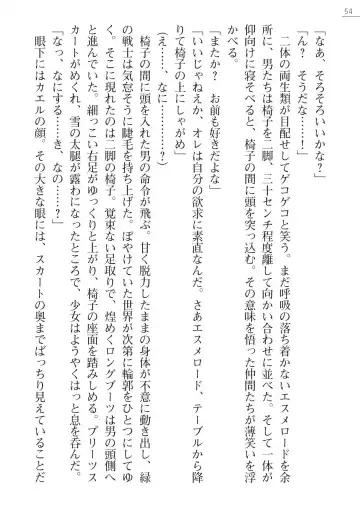 54
「なあ、そろそろいいかな？」
「ん？　そうだな……！」
　二体の両生類が目配せしてゲコゲコと笑う。まだ呼吸の落ち着かないエスメロードを余
所に、男たちは椅子を二脚、三十センチ程度離して向かい合わせに並べた。そして一体が
仰向けに寝そべると、椅子の間に頭を突っ込む。その意味を悟った仲間たちが薄笑いを浮
かべる。
「またか？　お前も好きだよな」
「いいじゃねえか、オレは自分の欲求に素直なんだ。さあエスメロード、テーブルから降
りて椅子の上にしゃがめ」
（え……、なに………？）
　椅子の間に頭を入れた男の命令が飛ぶ。甘く脱力したままの身体が不意に動き出し、緑
の戦士は気怠そうに睫毛を持ち上げた。ぼやけていた世界が次第に輪郭をひとつにしてゆ
く。そこに現れたのは二脚の椅子。覚束ない足取りで、煌めくロングブーツは男の頭側へ
と進んでいた。細っこい右足がゆっくりと上がり、椅子の座面を踏みしめる。プリーツス
カートがめくれ、雪の太腿が露わになったところで、少女はようやくはっと息を呑んだ。
「なっ、なにする……き、なの……？」
　眼下にはカエルの顔。その大きな眼には、スカートの奥までばっちり見えていることだ